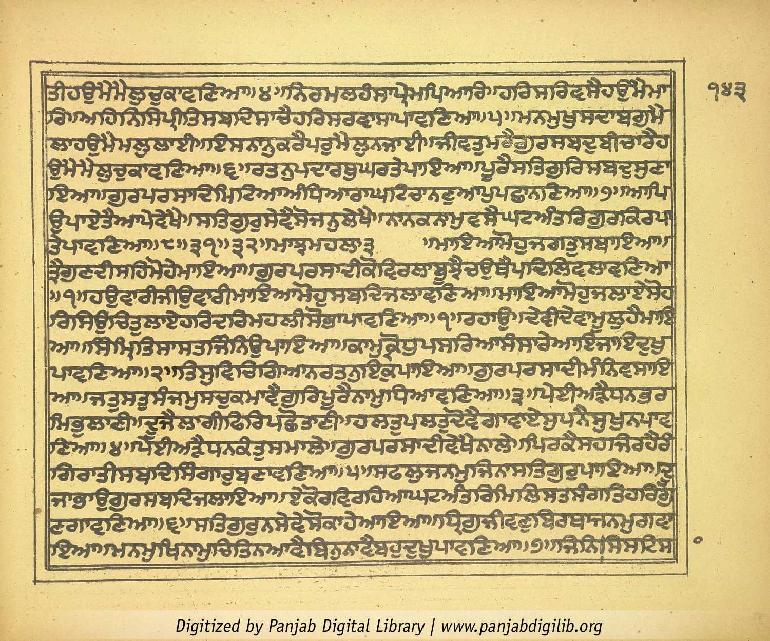 ਤੀਹਉਮੈਮੈਲੁਚੁਕਾਵਣਿਆ॥੪॥ਨਿਰਮਲਹੰਸਾਪ੍ਰੇਮਪਿਆਰਿ॥ਹਰਿਸਰਿਵਸੈਹਉਮੈਮਾ ੧੪੩
ਰਿ॥ਅਹਿਨਿਸਿਪ੍ਰੀਤਿਸਬਦਿਸਾਚੈਹਰਿਸਰਵਾਸਾਪਾਵਣਿਆ॥੫॥ਮਨਮੁਖੁਸਦਾਬਗੁਮੈ
ਲਾਹਉਮੈਮਲੁਲਾਈ॥ਇਸਨਾਨੁਕਰੈਪਰੁਮੈਲੁਨਜਾਈ॥ਜੀਵਤੁਮਰੈਗੁਰਸਬਦੁਬੀਚਾਰੈਹ
ਉਮੈਮੈਲੁਚੁਕਾਵਣਿਆ॥੬॥ਰਤਨੁਪਦਾਰਥੁਘਰਤੇਪਾਇਆ॥ਪੂਰੈਸਤਿਗੁਰਿਸਬਦੁਸੁਣਾ
ਇਆ॥ਗੁਰਪਰਸਾਦਿਮਿਟਿਆਅੰਧਿਆਰਾਘਟਿਚਾਨਣੁਆਪੁਪਛਾਨਣਿਆ॥੭॥ਆਪਿ
ਉਪਾਏਤੈਆਪੇਵੇਖੈ॥ਸਤਿਗੁਰੁਸੇਵੈਸੋਜਨੁਲੇਖੈ॥ਨਾਨਕਨਾਮੁਵਸੈਘਟਅੰਤਰਿਗੁਰਕਿਰਪਾ
ਤੇਪਾਵਣਿਆ॥੮॥੩੧॥੩੨॥ਮਾਝਮਹਲਾ੩ ॥ਮਾਇਆਮੋਹੁਜਗਤੁਸਬਾਇਆ॥
ਤ੍ਰੈਗੁਣਦੀਸਹਿਮੋਹੇਮਾਇਆ॥ਗੁਰਪਰਸਾਦੀਕੋਵਿਰਲਾਬੂਝੈਚਉਥੈਪਦਿਲਿਵਲਾਵਣਿਆ
॥੧॥ਹਉਵਾਰੀਜੀਉਵਾਰੀਮਾਇਆਮੋਹੁਸਬਦਿਜਲਾਵਣਿਆ॥ਮਾਇਆਮੋਹੁਜਲਾਏਸੋਹ
ਰਿਸਿਉਚਿਤੁਲਾਏਹਰਿਦਰਿਮਹਲੀਸੋਭਾਪਾਵਣਿਆ॥੧॥ਰਹਾਉ॥ਦੇਵੀਦੇਵਾਮੂਲੁਹੈਮਾਇ
ਆ॥ਸਿੰਮ੍ਰਿਤਿਸਾਸਤਜਿੰਨਿਉਪਾਇਆ॥ਕਾਮੁਕ੍ਰੋਧੁਪਸਰਿਆਸੰਸਾਰੇਆਇਜਾਇਦੁਖੁ
ਪਾਵਣਿਆ॥੨॥ਤਿਸੁਵਿਚਿਗਿਆਨਰਤਨੁਇਕੁਪਾਇਆ॥ਗੁਰਪਰਸਾਦੀਮੰਨਿਵਸਾਇ
ਆ॥ਜਤੁਸਤੁਸੰਜਮੁਸਚੁਕਮਾਵੈਗੁਰਿਪੂਰੈਨਾਮੁਧਿਆਵਣਿਆ॥੩॥ਪੇਈਅੜੈਧਨਭਰ
ਮਿਭੁਲਾਣੀ॥ਦੂਜੈਲਾਗੀਫਿਰਿਪਛੋਤਾਣੀ॥ਹਲਤੁਪਲਤੁਦੋਵੈਗਵਾਏਸੁਪਨੈਸੁਖੁਨਪਾਵ
ਣਿਆ॥੪॥ਪੇਈਅੜੈਧਨਕੰਤੁਸਮਾਲੇ॥ਗੁਰਪਰਸਾਦੀਵੇਖੈਨਾਲੇ॥ਪਿਰਕੈਸਹਜਿਰਹੈਰੰ
ਗਿਰਾਤੀਸਬਦਿਸਿੰਗਾਰੁਬਣਾਵਣਿਆ॥੫॥ਸਫਲੁਜਨਮੁਜਿਨਾਸਤਿਗੁਰੁਪਾਇਆ॥ਦੂ
ਜਾਭਾਉਗੁਰਸਬਦਿਜਲਾਇਆ॥ਏਕੋਰਵਿਰਹਿਆਘਟਅੰਤਰਿਮਿਲਿਸਤਸੰਗਤਿਹਰਿਗੁ
ਣਗਾਵਣਿਆ॥੬॥ਸਤਿਗੁਰੁਨਸੇਵੇਸੋਕਾਹੇਆਇਆ॥ਧ੍ਰਿਗੁਜੀਵਣੁਬਿਰਥਾਜਨਮੁਗਵਾ
ਇਆ॥ਮਨਮੁਖਿਨਾਮੁਚਿਤਿਨਆਵੈਬਿਨੁਨਾਵੈਬਹੁਦੁਖੁਪਾਵਣਿਆ॥੭॥ਜਿਨਿਸਿਸਟਿਸ
Digitized by Panjab Digital Library | www.panjabdigilib.org